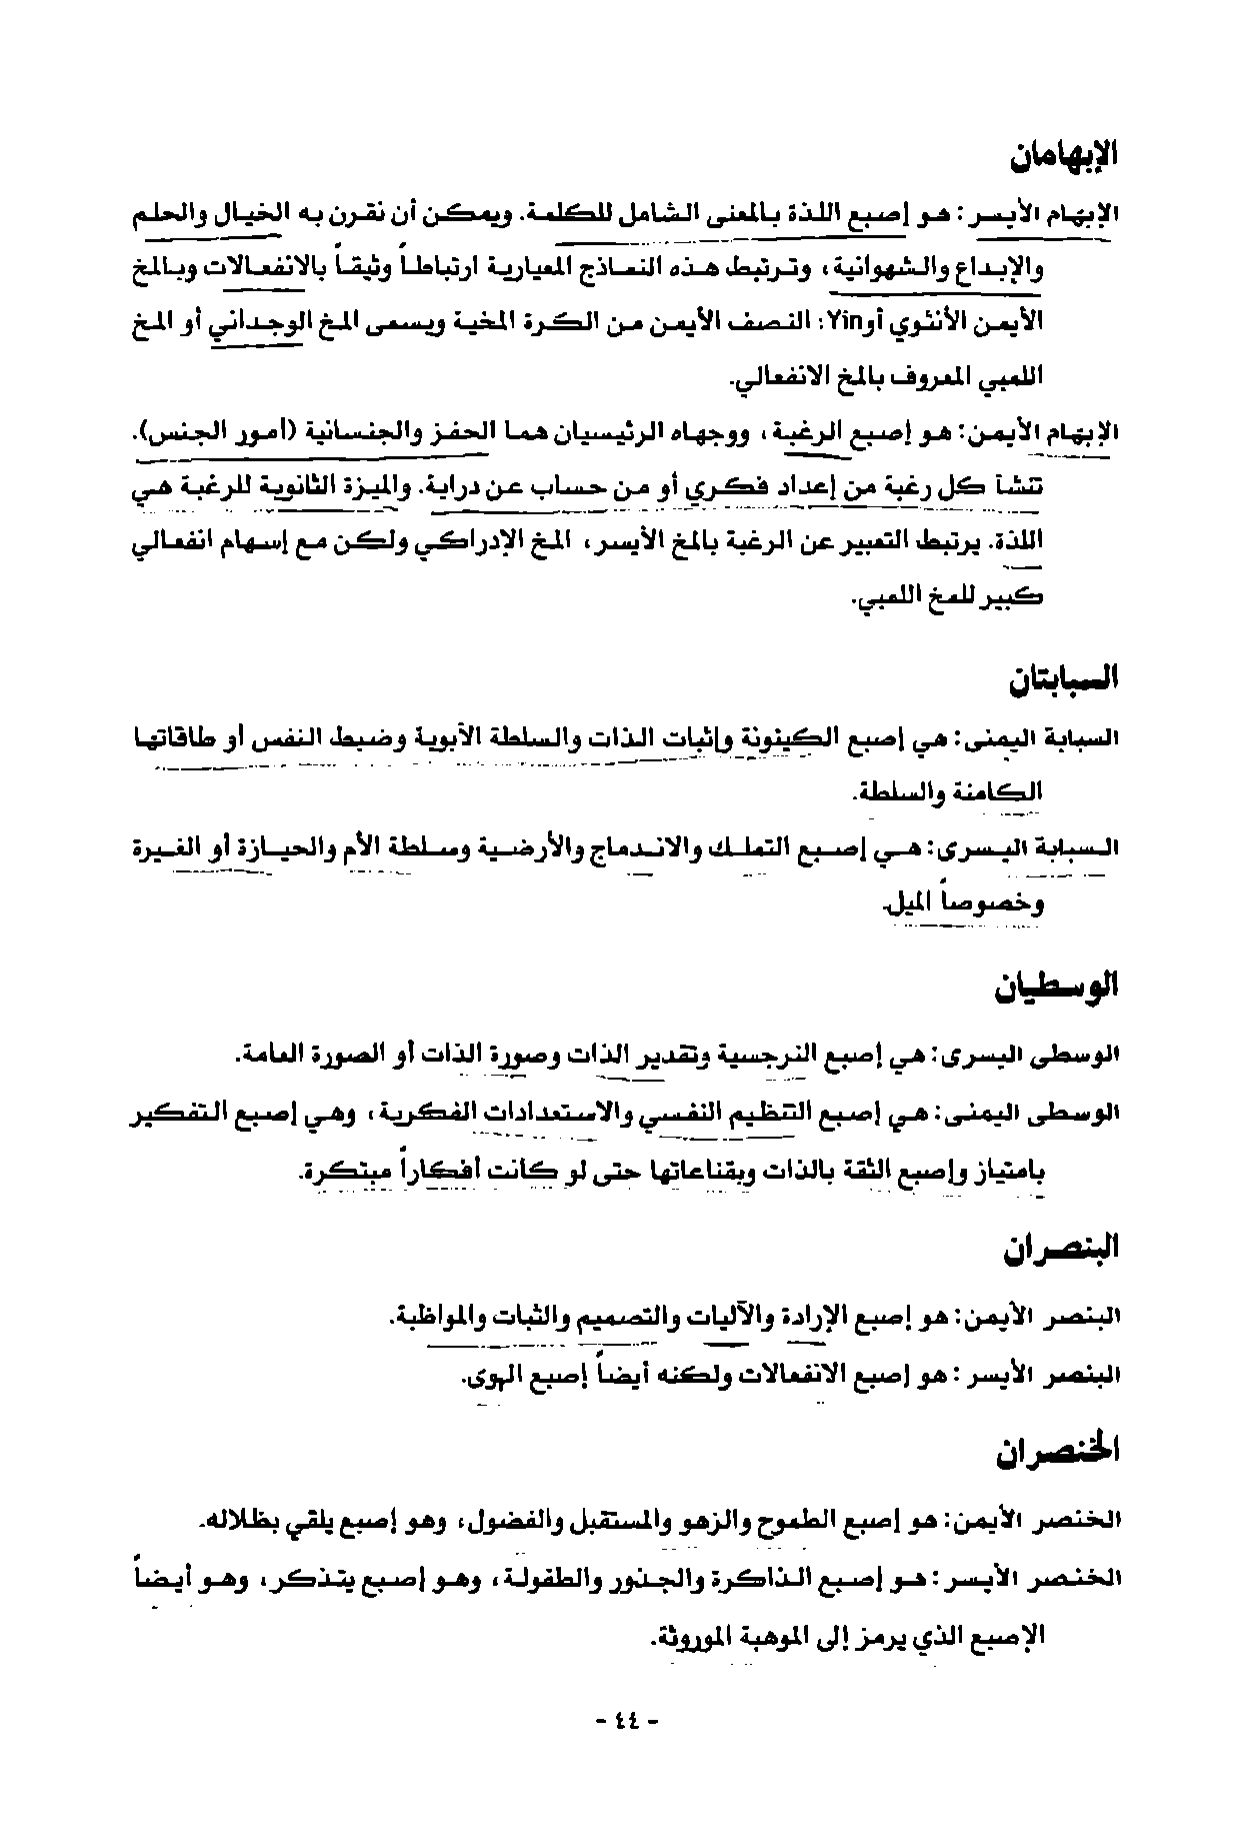 الإبهامان
الإبهام الأيسر: هو إصبع اللذة بالمعنى الشامل للكلمة. ويمكن أن نقرن به الخيال والحلم
والإبداع والشهوانية، وترتبط هذه النماذج المعيارية ارتباطاً وثيقاً بالانفعالات وبالمخ
الأيمن الأنثوي أوYin: النصف الأيمن من الكرة المخية ويسمى المخ الوجداني أو المخ
اللعبي المعروف بالمخ الانفعالي.
الإبهام الأيمن: هو إصبع الرغبة، ووجهاه الرئيسيان هما الحفز والجنسانية (أمور الجنس).
تنشأ كل رغبة من إعداد فكري أو من حساب عن دراية. والميزة الثانوية للرغبة هي
اللذة. يرتبط التعبير عن الرغبة بالمخ الأيسر، المخ الإدراكي ولكن مع إسهام انفعالي
كبير للمخ اللعبي.
السبابتان
السبابة اليمنى: هي إصبع الكينونة وإثبات الذات والسلطة الأبوية وضبط النفس أو طاقاتها
الكامنة والسلطة.
السبابة اليسرى: هي إصبع التملك والاندماج والأرضية وسلطة الأم والحيازة أو الغيرة
وخصوصاً الميل.
الوسطيان
الوسطى اليسرى: هي إصبع النرجسية وتقدير الذات وصورة الذات أو الصورة العامة.
الوسطى اليمنى: هي إصبع التنظيم النفسي والاستعدادات الفكرية، وهي إصبع التفكير
بامتياز وإصبع الثقة بالذات وبقناعاتها حتى لو كانت أفكاراً مبتكرة.
البنصران
البنصر الأيمن: هو إصبع الإرادة والآليات والتصميم والثبات والمواظبة.
البنصر الأيسر: هو إصبع الانفعالات ولكنه أيضاً إصبع الهوى.
الخنصران
الخنصر الأيمن: هو إصبع الطموح والزهو والمستقبل والفضول، وهو إصبع يلقي بظلاله.
الخنصر الأيسر: هو إصبع الذاكرة والجذور والطفولة، وهو إصبع يتذكر، وهو أيضاً
الإصبع الذي يرمز إلى الموهبة الموروثة.
- ٤٤ -